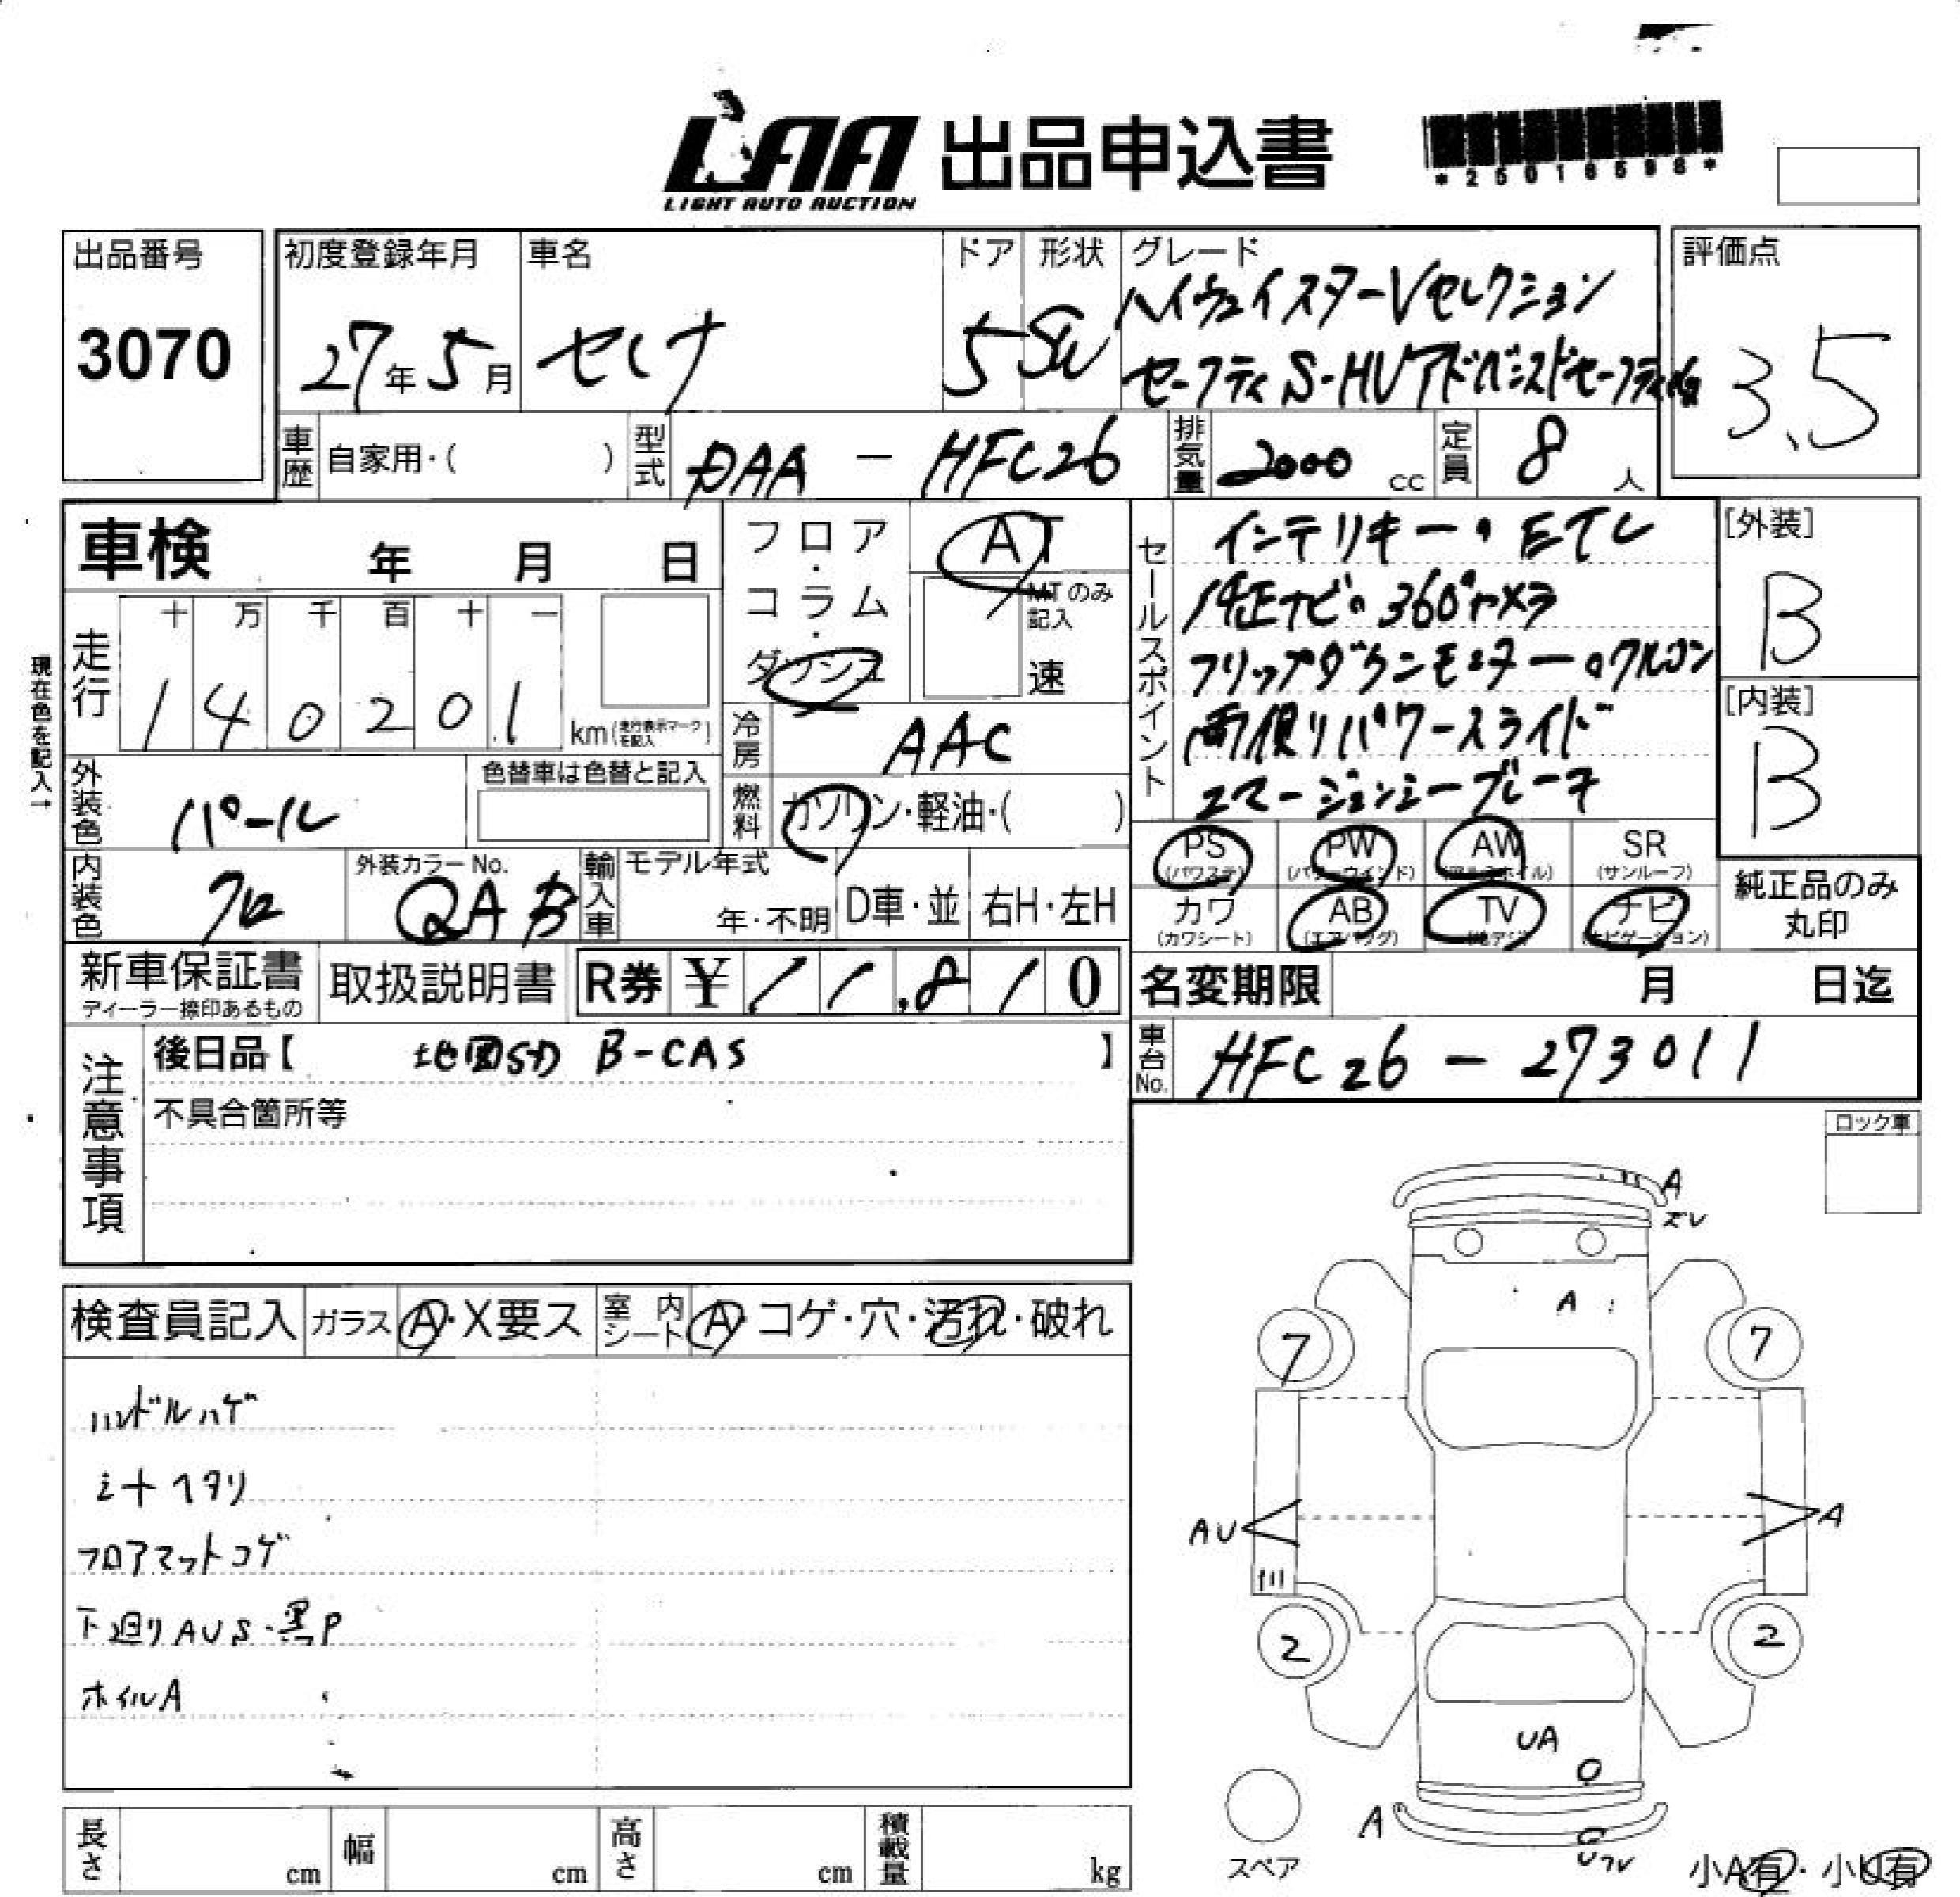 LAA 出品申込書
LIGHT AUTO AUCTION
*25018598*
出品番号
3070
初度登録年月
27年5月
車名
セレナ
ドア
5
形状
SW
グレード
ハイウェイスターVセレクション
セーフティS-HVアドバンスドセーフティ
評価点
3.5
車歴
自家用・( )
型式
DAA - HFC26
排気量
2000 cc
定員
8 人
車検 年 月 日
フロア・コラム・ダッシュ
AT
MTのみ記入
速
セールスポイント
インテリキー・ETC
純正ナビ。360°カメラ
フリップダウンモニター。クルコン
両側リパワースライド
エマージェンシーブレーキ
[外装]
B
[内装]
B
現在色を記入→
走行
十 万 千 百 十 一
1 4 0 2 0 1 km(走行表示マークを記入)
冷房
AAC
外装色
パール
色替車は色替と記入
燃料
ガソリン・軽油・( )
PS (パワステ)
PW (パワーウインド)
AW (アルミホイル)
SR (サンルーフ)
カワ (カワシート)
AB (エアバッグ)
TV (地デジ)
ナビ (ナビゲーション)
純正品のみ丸印
内装色
クロ
外装カラーNo.
QAB
輸入車
モデル年式
年・不明
D車・並
右H・左H
新車保証書
ディーラー捺印あるもの
取扱説明書
R券 ¥11,810
名変期限 月 日迄
注意事項
後日品【 地図SD B-CAS 】
不具合箇所等
車台No.
HFC26 - 273011
ロック車
検査員記入
ガラス
A・X要ス
室内シート
A・コゲ・穴・汚れ・破れ
ハンドルハゲ
シートヘタリ
フロアマットコゲ
下廻りAUS・黒P
ホイルA
A
ズレ
A
7
7
AU
A
2
2
UA
A
スペア
小A有・小U有
長さ cm
幅 cm
高さ cm
積載量 kg